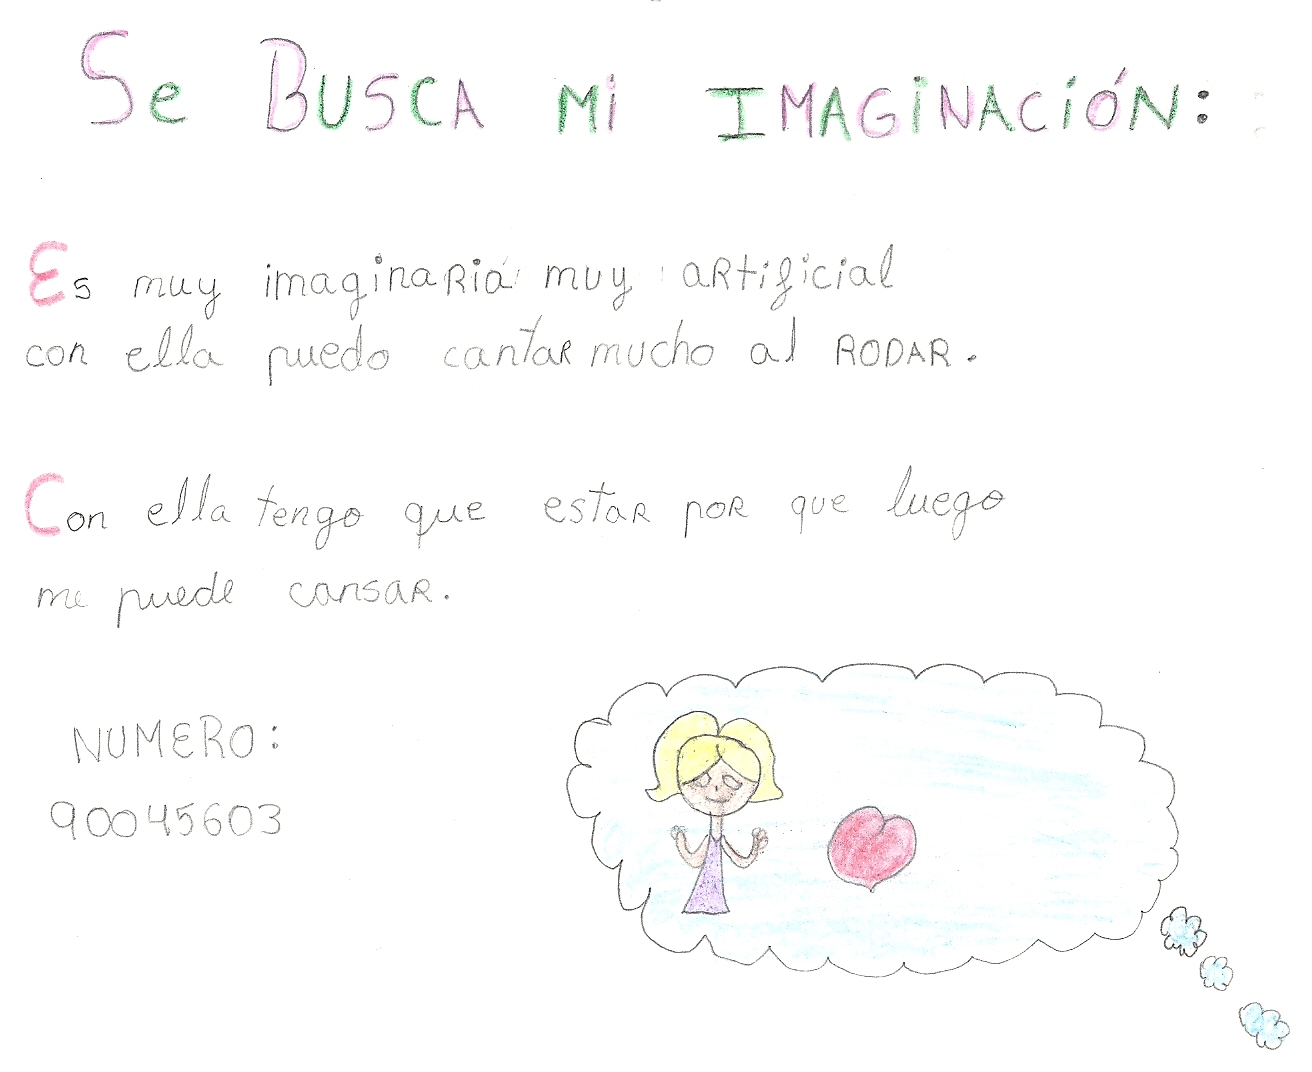 Se BUSCA Mi IMAGiNACiÓN:
Es muy imaginaria muy artificial
con ella puedo cantar mucho al RODAR.
Con ella tengo que estar por que luego
me puede cansar.
NUMERO:
90045603